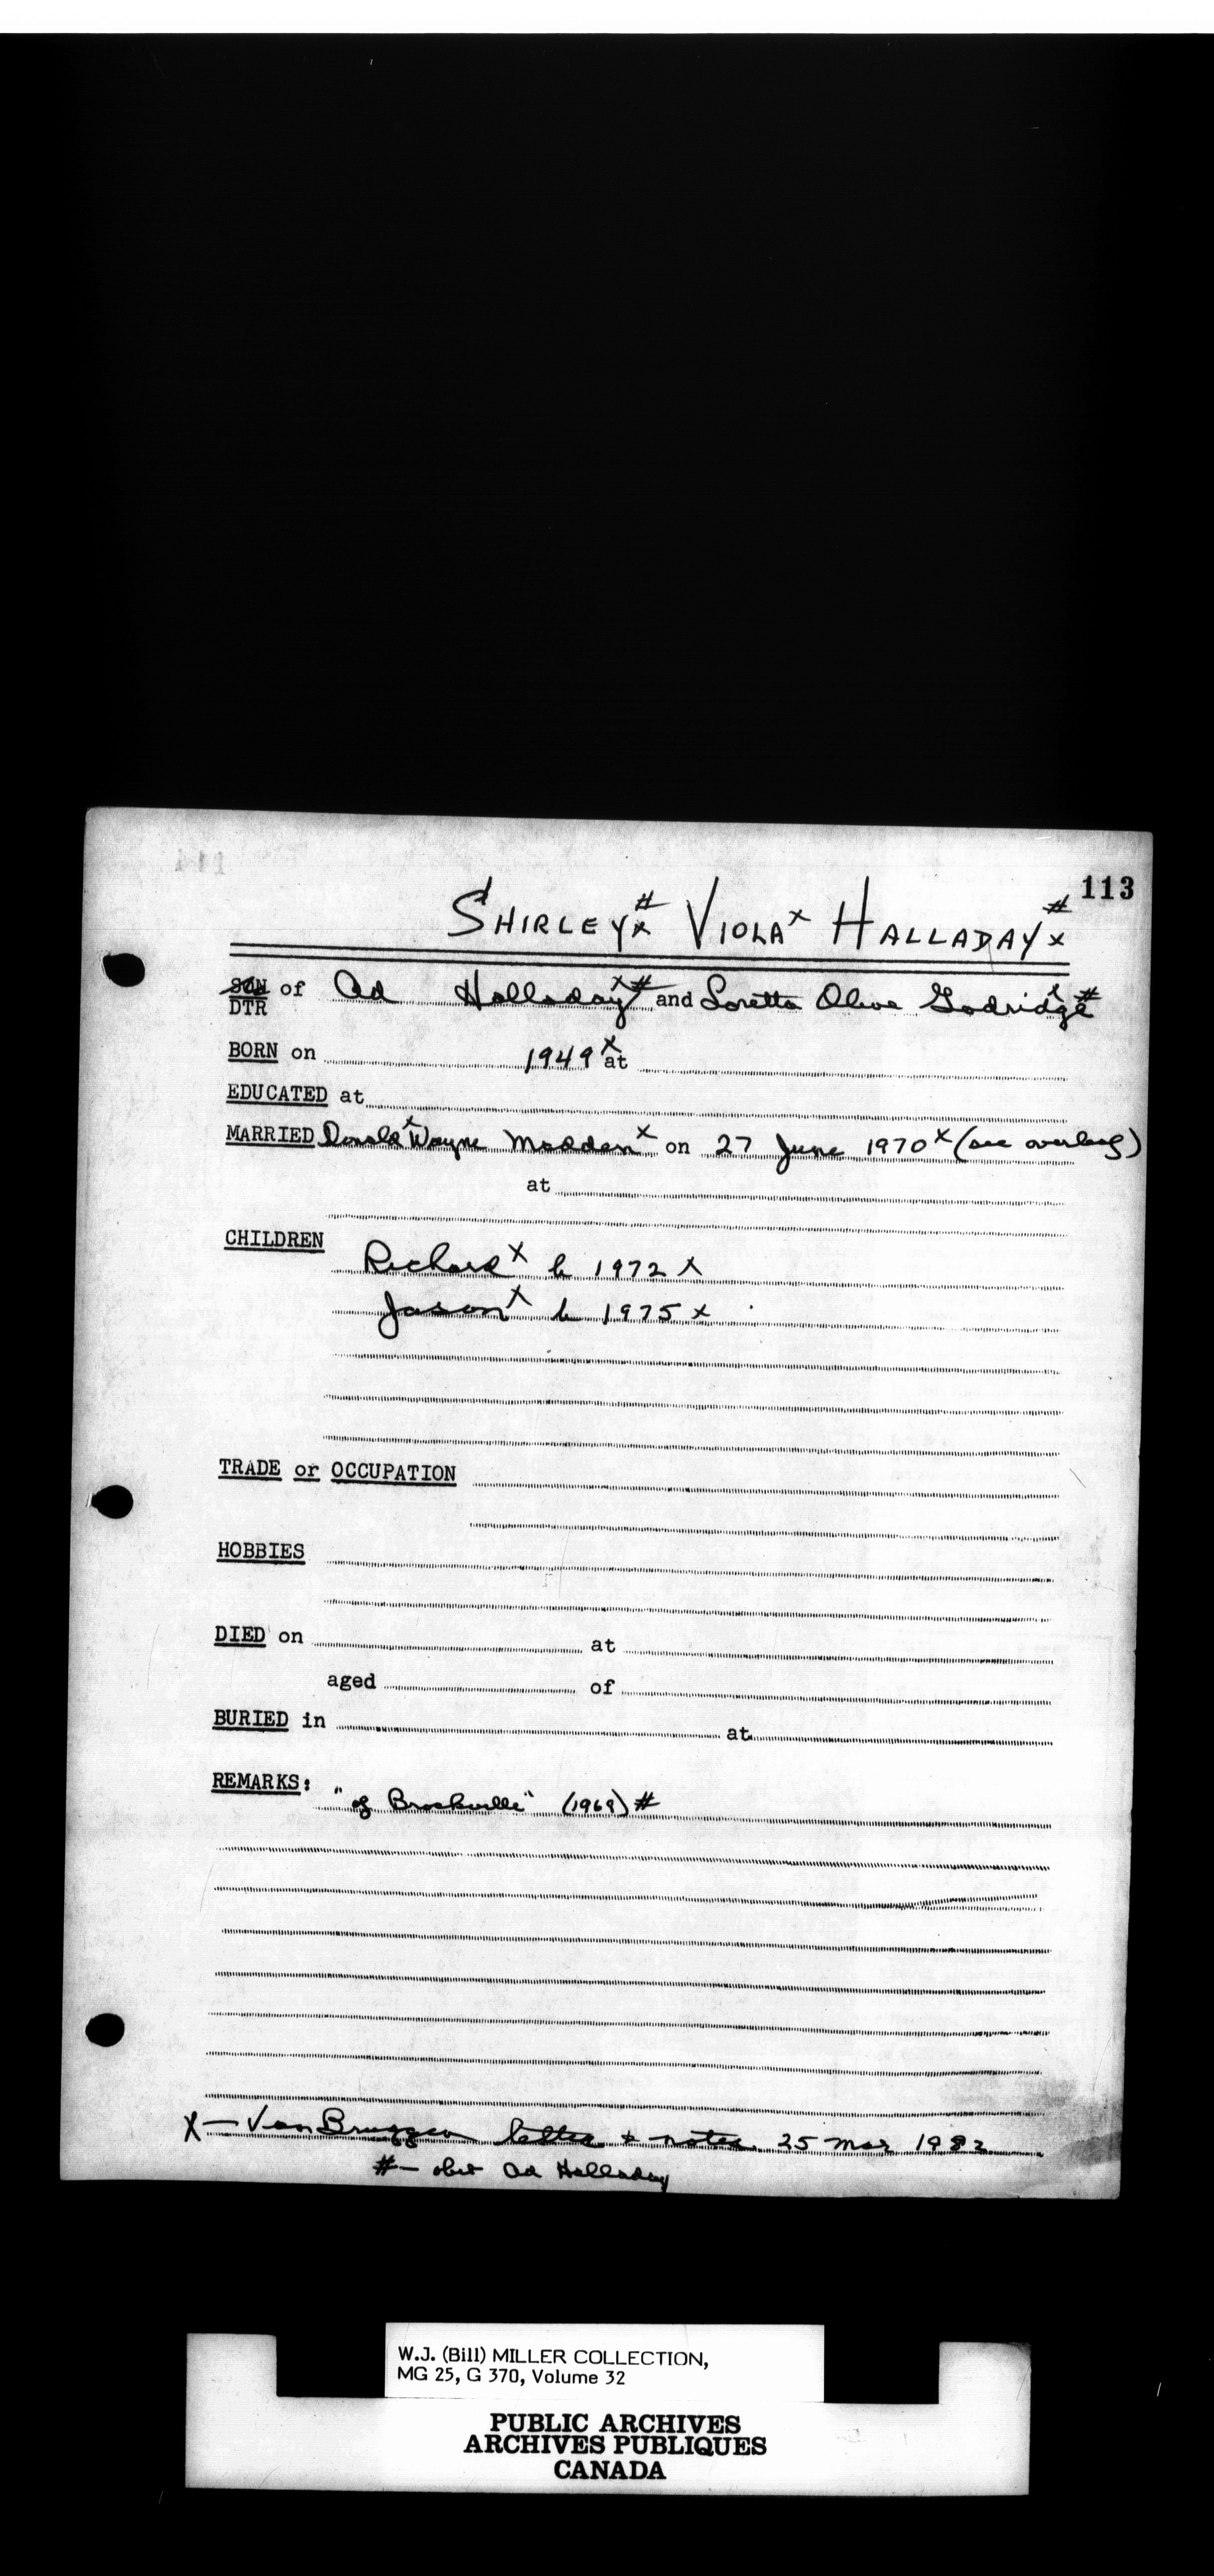 113
SHIRLEY#x VIOLAx HALLADAY#x
SON of Ad Hallodayx# and Loretta Olive Godridgex#
DTR
BORN on 1949x at
EDUCATED at
MARRIED Donaldx Wayne Maddenx on 27 June 1970x (see overleaf)
at
CHILDREN
Richardx b 1972x
Jasonx b 1975x
TRADE or OCCUPATION
HOBBIES
DIED on at
aged of
BURIED in at
REMARKS:
"of Brockville" (1969)#
X - Van Bruggen letter & notes 25 Mar 1982
# - obit Ad Halladay
W.J. (Bill) MILLER COLLECTION,
MG 25, G 370, Volume 32
PUBLIC ARCHIVES
ARCHIVES PUBLIQUES
CANADA